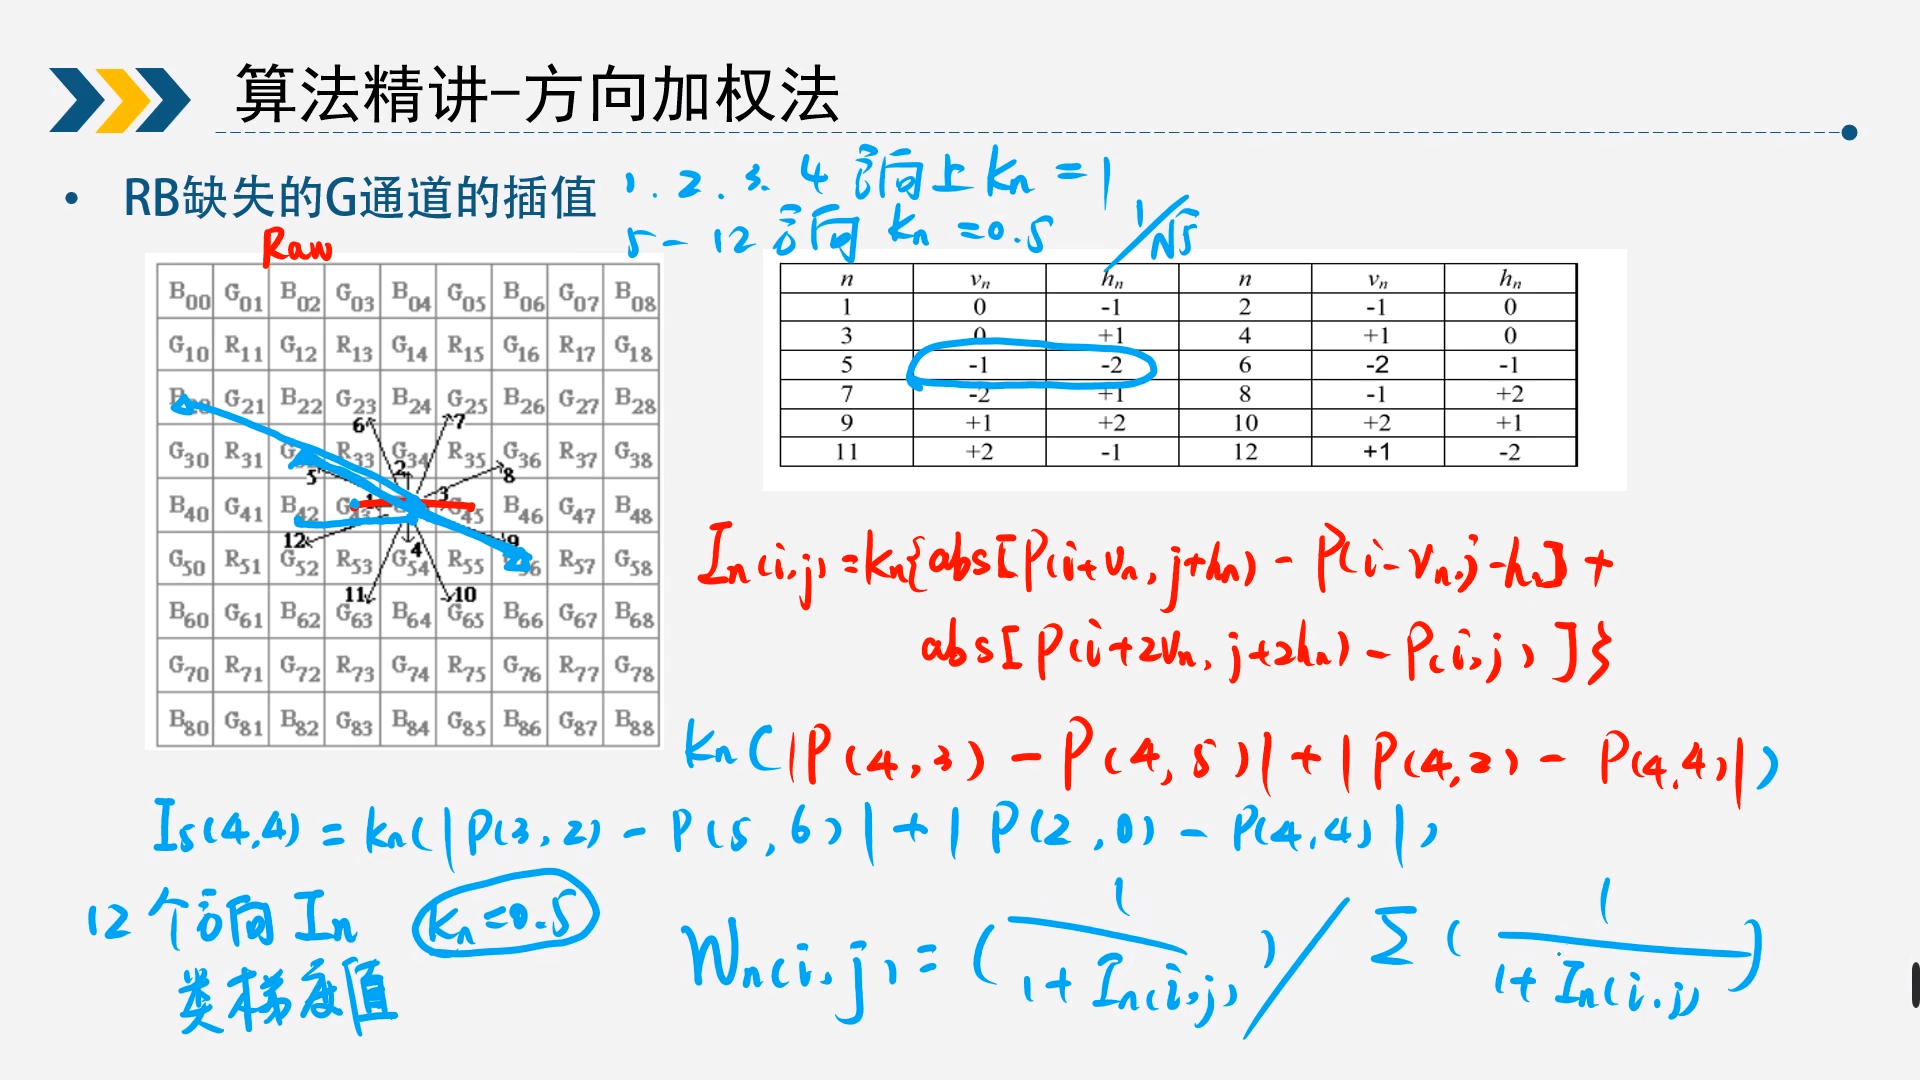 算法精讲-方向加权法
• RB缺失的G通道的插值
1.2.3.4 方向上 kn = 1
5-12 方向 kn = 0.5 1/√5
Raw
B00 G01 B02 G03 B04 G05 B06 G07 B08
G10 R11 G12 R13 G14 R15 G16 R17 G18
B20 G21 B22 G23 B24 G25 B26 G27 B28
6 7
G30 R31 R33 G34 R35 G36 R37 G38
5 2 8
B40 G41 B42 G43 1 3 G45 B46 G47 B48
12 4 9
G50 R51 G52 R53 G54 R55 R57 G58
11 10
B60 G61 B62 G63 B64 G65 B66 G67 B68
G70 R71 G72 R73 G74 R75 G76 R77 G78
B80 G81 B82 G83 B84 G85 B86 G87 B88
n vn hn n vn hn
1 0 -1 2 -1 0
3 0 +1 4 +1 0
5 -1 -2 6 -2 -1
7 -2 +1 8 -1 +2
9 +1 +2 10 +2 +1
11 +2 -1 12 +1 -2
In(i,j) = kn{abs[P(i+vn, j+hn) - P(i-vn, j-hn)] +
abs[P(i+2vn, j+2hn) - P(i,j)]}
kn(|P(4,3) - P(4,5)| + |P(4,2) - P(4,4)|)
I5(4,4) = kn(|P(3,2) - P(5,6)| + |P(2,0) - P(4,4)|)
12个方向 In kn=0.5
类梯度值
Wn(i,j) = (1/(1+In(i,j))) / Σ(1/(1+In(i,j)))